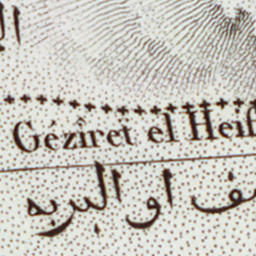 Gézîret el Heif
او البريه